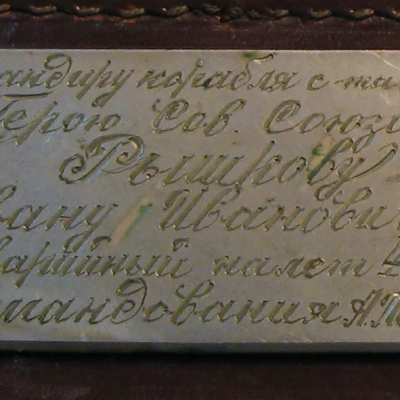 андиру корабля с-та
Герою Сов. Союз
Рышкову
вану Иванови
варийный налет
мандования А.